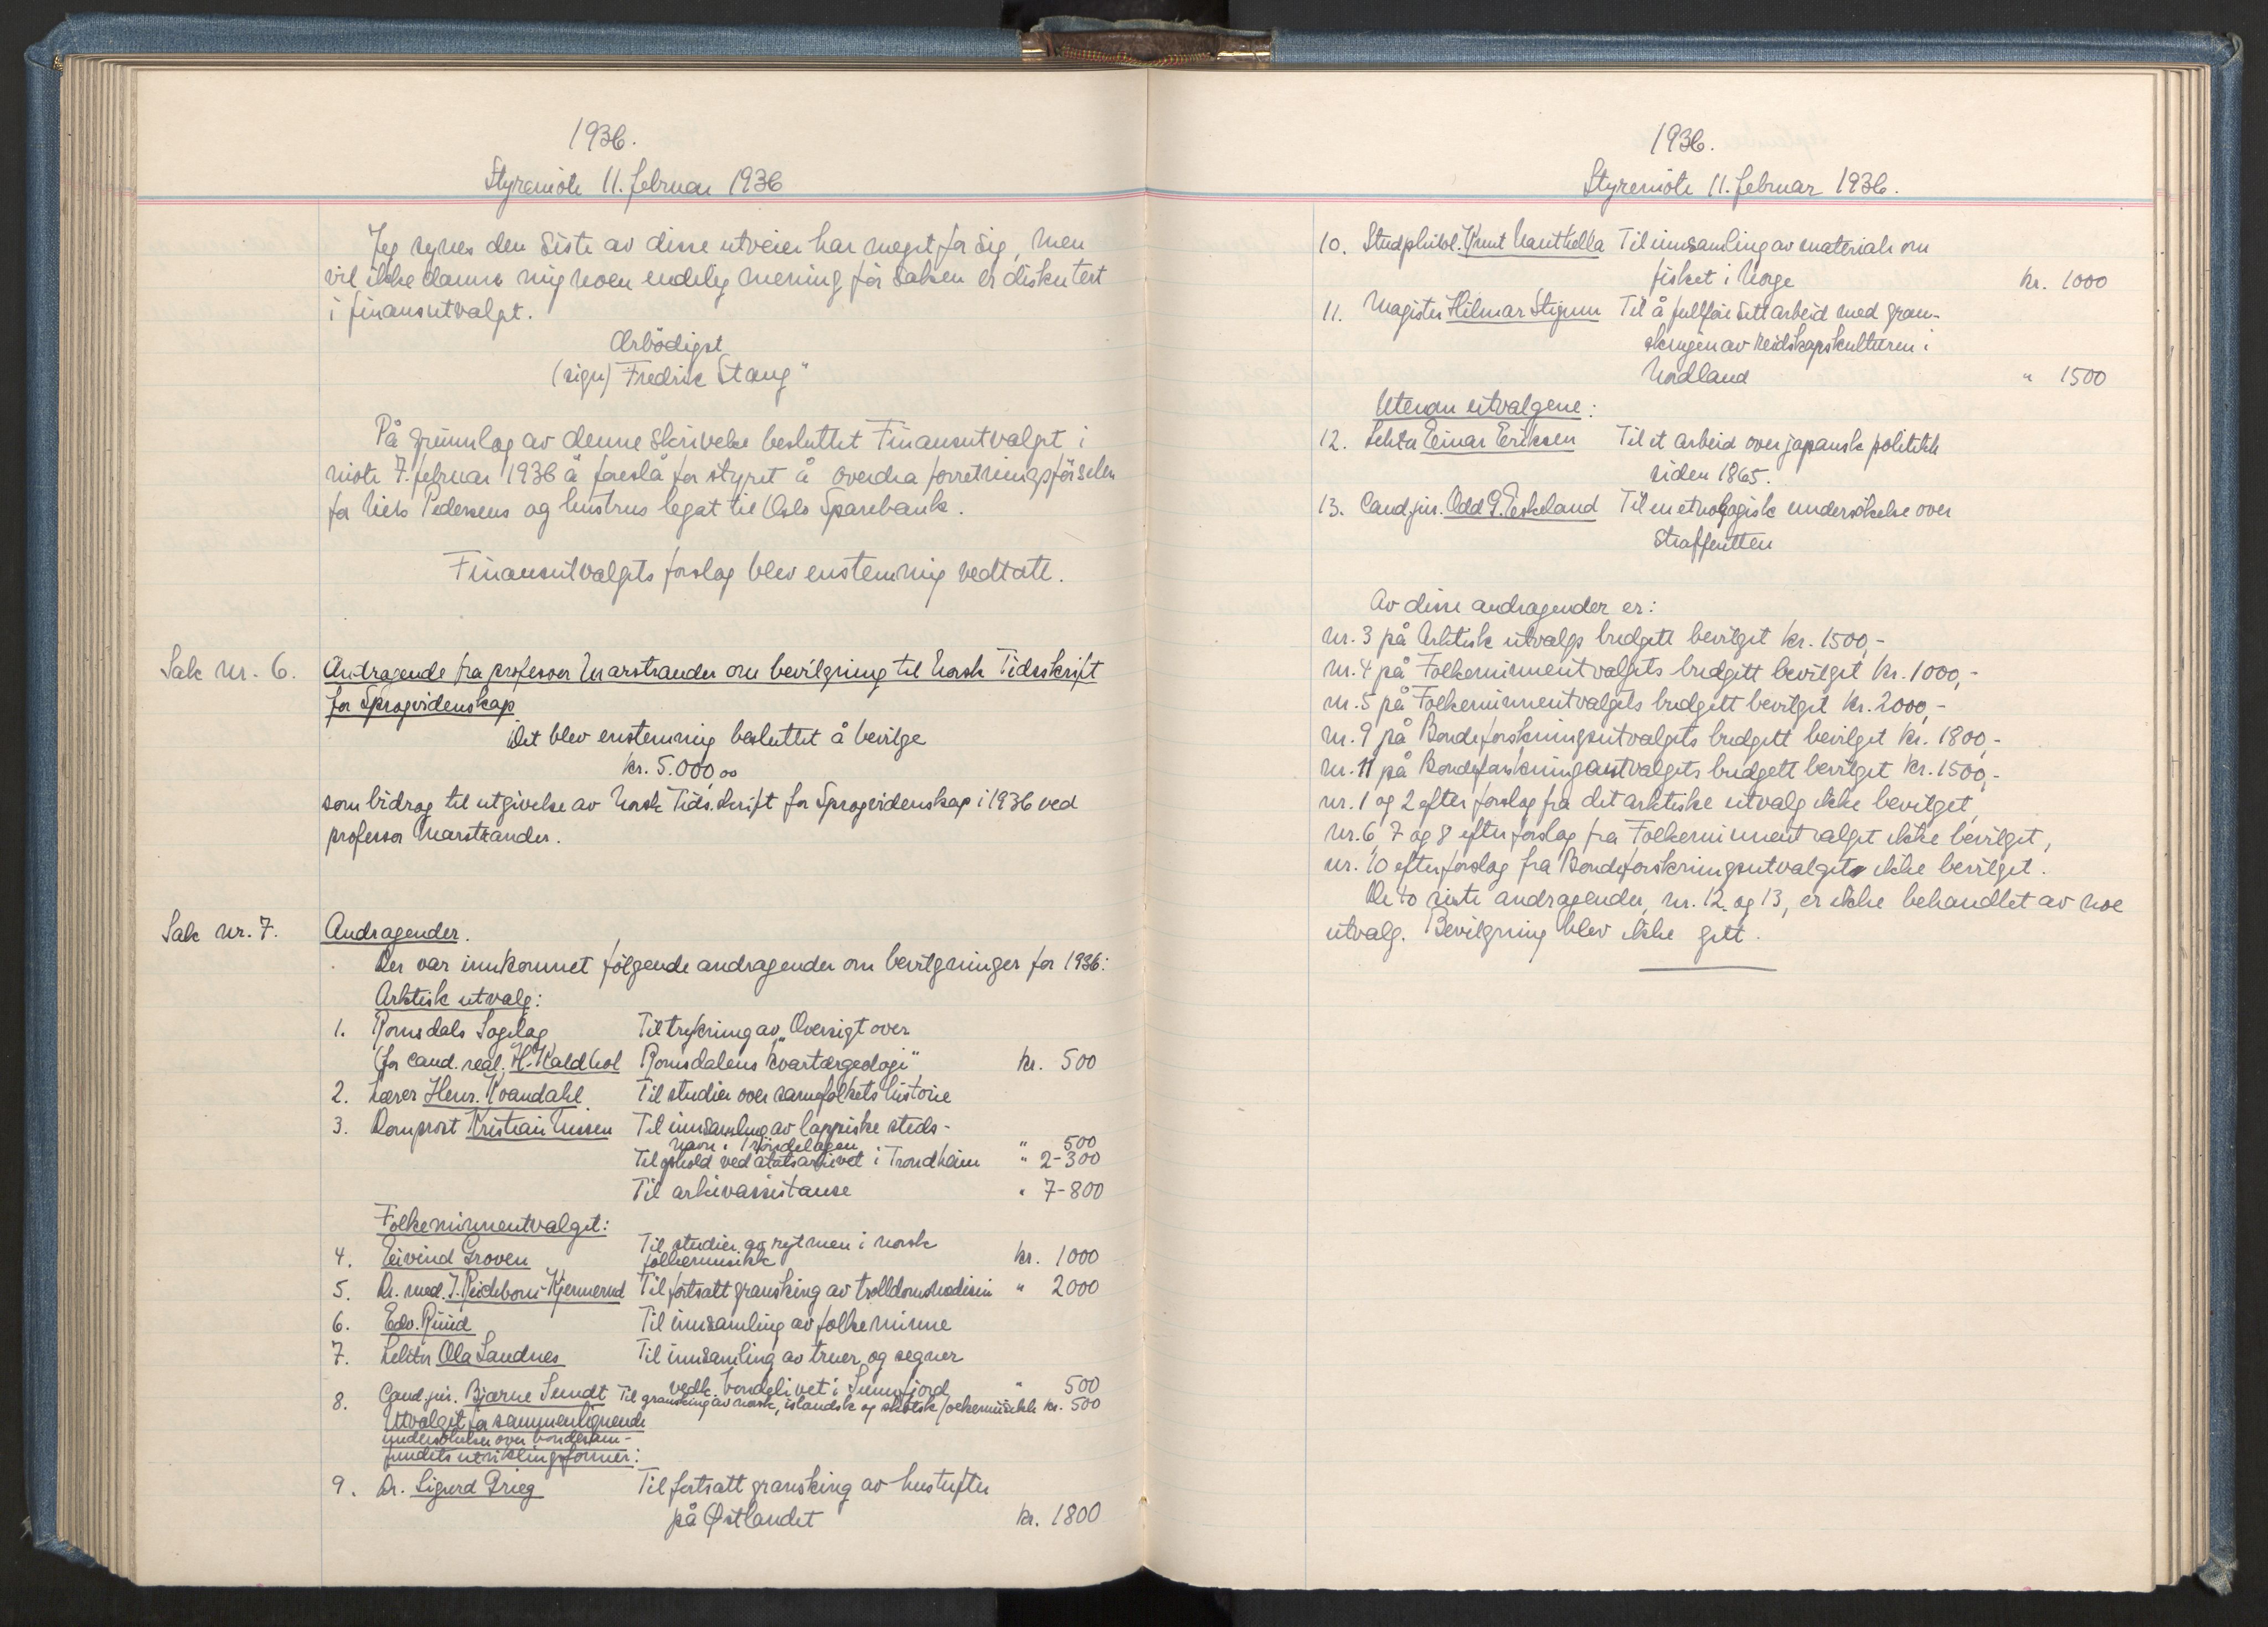 1936.
Styremöte 11. februar 1936
Jeg synes den siste av disse utveier har meget for sig, men
vil ikke danne mig noen endelig mening för saken er diskutert
i finansutvalget.
Ærbödigst
(sign) Fredrik Stang"
På grunnlag av denne skrivelse besluttet Finansutvalget i
möte 7. februar 1936 å foreslå for styret å overdra forretningsförselen
for Niels Pedersens og hustrus legat til Oslo Sparebank.
Finansutvalgets forslag blev enstemmig vedtatt.
Sak nr. 6.
Andragende fra professor Marstrander om bevilgning til Norsk Tidsskrift
for Sprogvidenskap
Det blev enstemmig besluttet å bevilge
kr. 5.000,00
som bidrag til utgivelse av Norsk Tidsskrift for Sprogvidenskap i 1936 ved
professor Marstrander.
Sak nr. 7.
Andragender.
Der var innkommet fölgende andragender om bevilgninger for 1936:
Arktisk utvalg:
1. Romsdals Sogelag Til trykning av "Oversigt over
(for cand. real. H. Kaldhol Romsdalens kvartærgeologi" kr. 500
2. Lærer Henr. Kvandahl Til studier over samefolkets historie
3. Domprost Kristian Nissen Til innsamling av lappiske steds-
navn i Tröndelagen " 500
Til ophold ved statsarkivet i Trondheim " 2-300
Til arkivassistanse " 7-800
Folkeminneutvalget:
4. Eivind Groven Til studier av rytmen i norsk
folkemusikk kr. 1000
5. Dr. med. I. Reichborn-Kjennerud Til fortsatt gransking av trolldomsmedisin " 2000
6. Edv. Ruud Til innsamling av folkeminne
7. Lektor Ola Sandnes Til innsamling av truer og segner
vedk. bondelivet i Sunnfjord " 500
8. Cand. jur. Bjarne Sundt Til gransking av norsk, islandsk og skotsk folkemusikk kr. 500
Utvalget for sammenlignende
undersökelser over bondesam-
fundets utviklingsformer:
9. Dr. Sigurd Grieg Til fortsatt gransking av hustufter
på Østlandet kr. 1800
1936.
Styremöte 11. februar 1936.
10. Stud. philol. Knut Nauthella Til innsamling av materiale om
fisket i Norge kr. 1000
11. Magister Hilmar Stigum Til å fullföre sitt arbeid med gran-
skingen av reidskapskulturen i
Nordland " 1500
Utenom utvalgene:
12. Lektor Einar Eriksen Til et arbeid over japansk politikk
siden 1865.
13. Cand. jur. Odd G. Eskeland Til en etnologisk undersökelse over
strafferetten
Av disse andragender er:
nr. 3 på Arktisk utvalgs budgett bevilget kr. 1500,-
nr. 4 på Folkeminneutvalgets budgett bevilget kr. 1000,-
nr. 5 på Folkeminneutvalgets budgett bevilget kr. 2000,-
nr. 9 på Bondeforskningsutvalgets budgett bevilget kr. 1800,-
nr. 11 på Bondeforskningsutvalgets budgett bevilget kr. 1500,-
nr. 1 og 2 efter forslag fra det arktiske utvalg ikke bevilget,
nr. 6, 7 og 8 efter forslag fra Folkeminneutvalget ikke bevilget,
nr. 10 efter forslag fra Bondeforskningsutvalget ikke bevilget.
De to siste andragender, nr. 12 og 13, er ikke behandlet av noe
utvalg. Bevilgning blev ikke gitt.